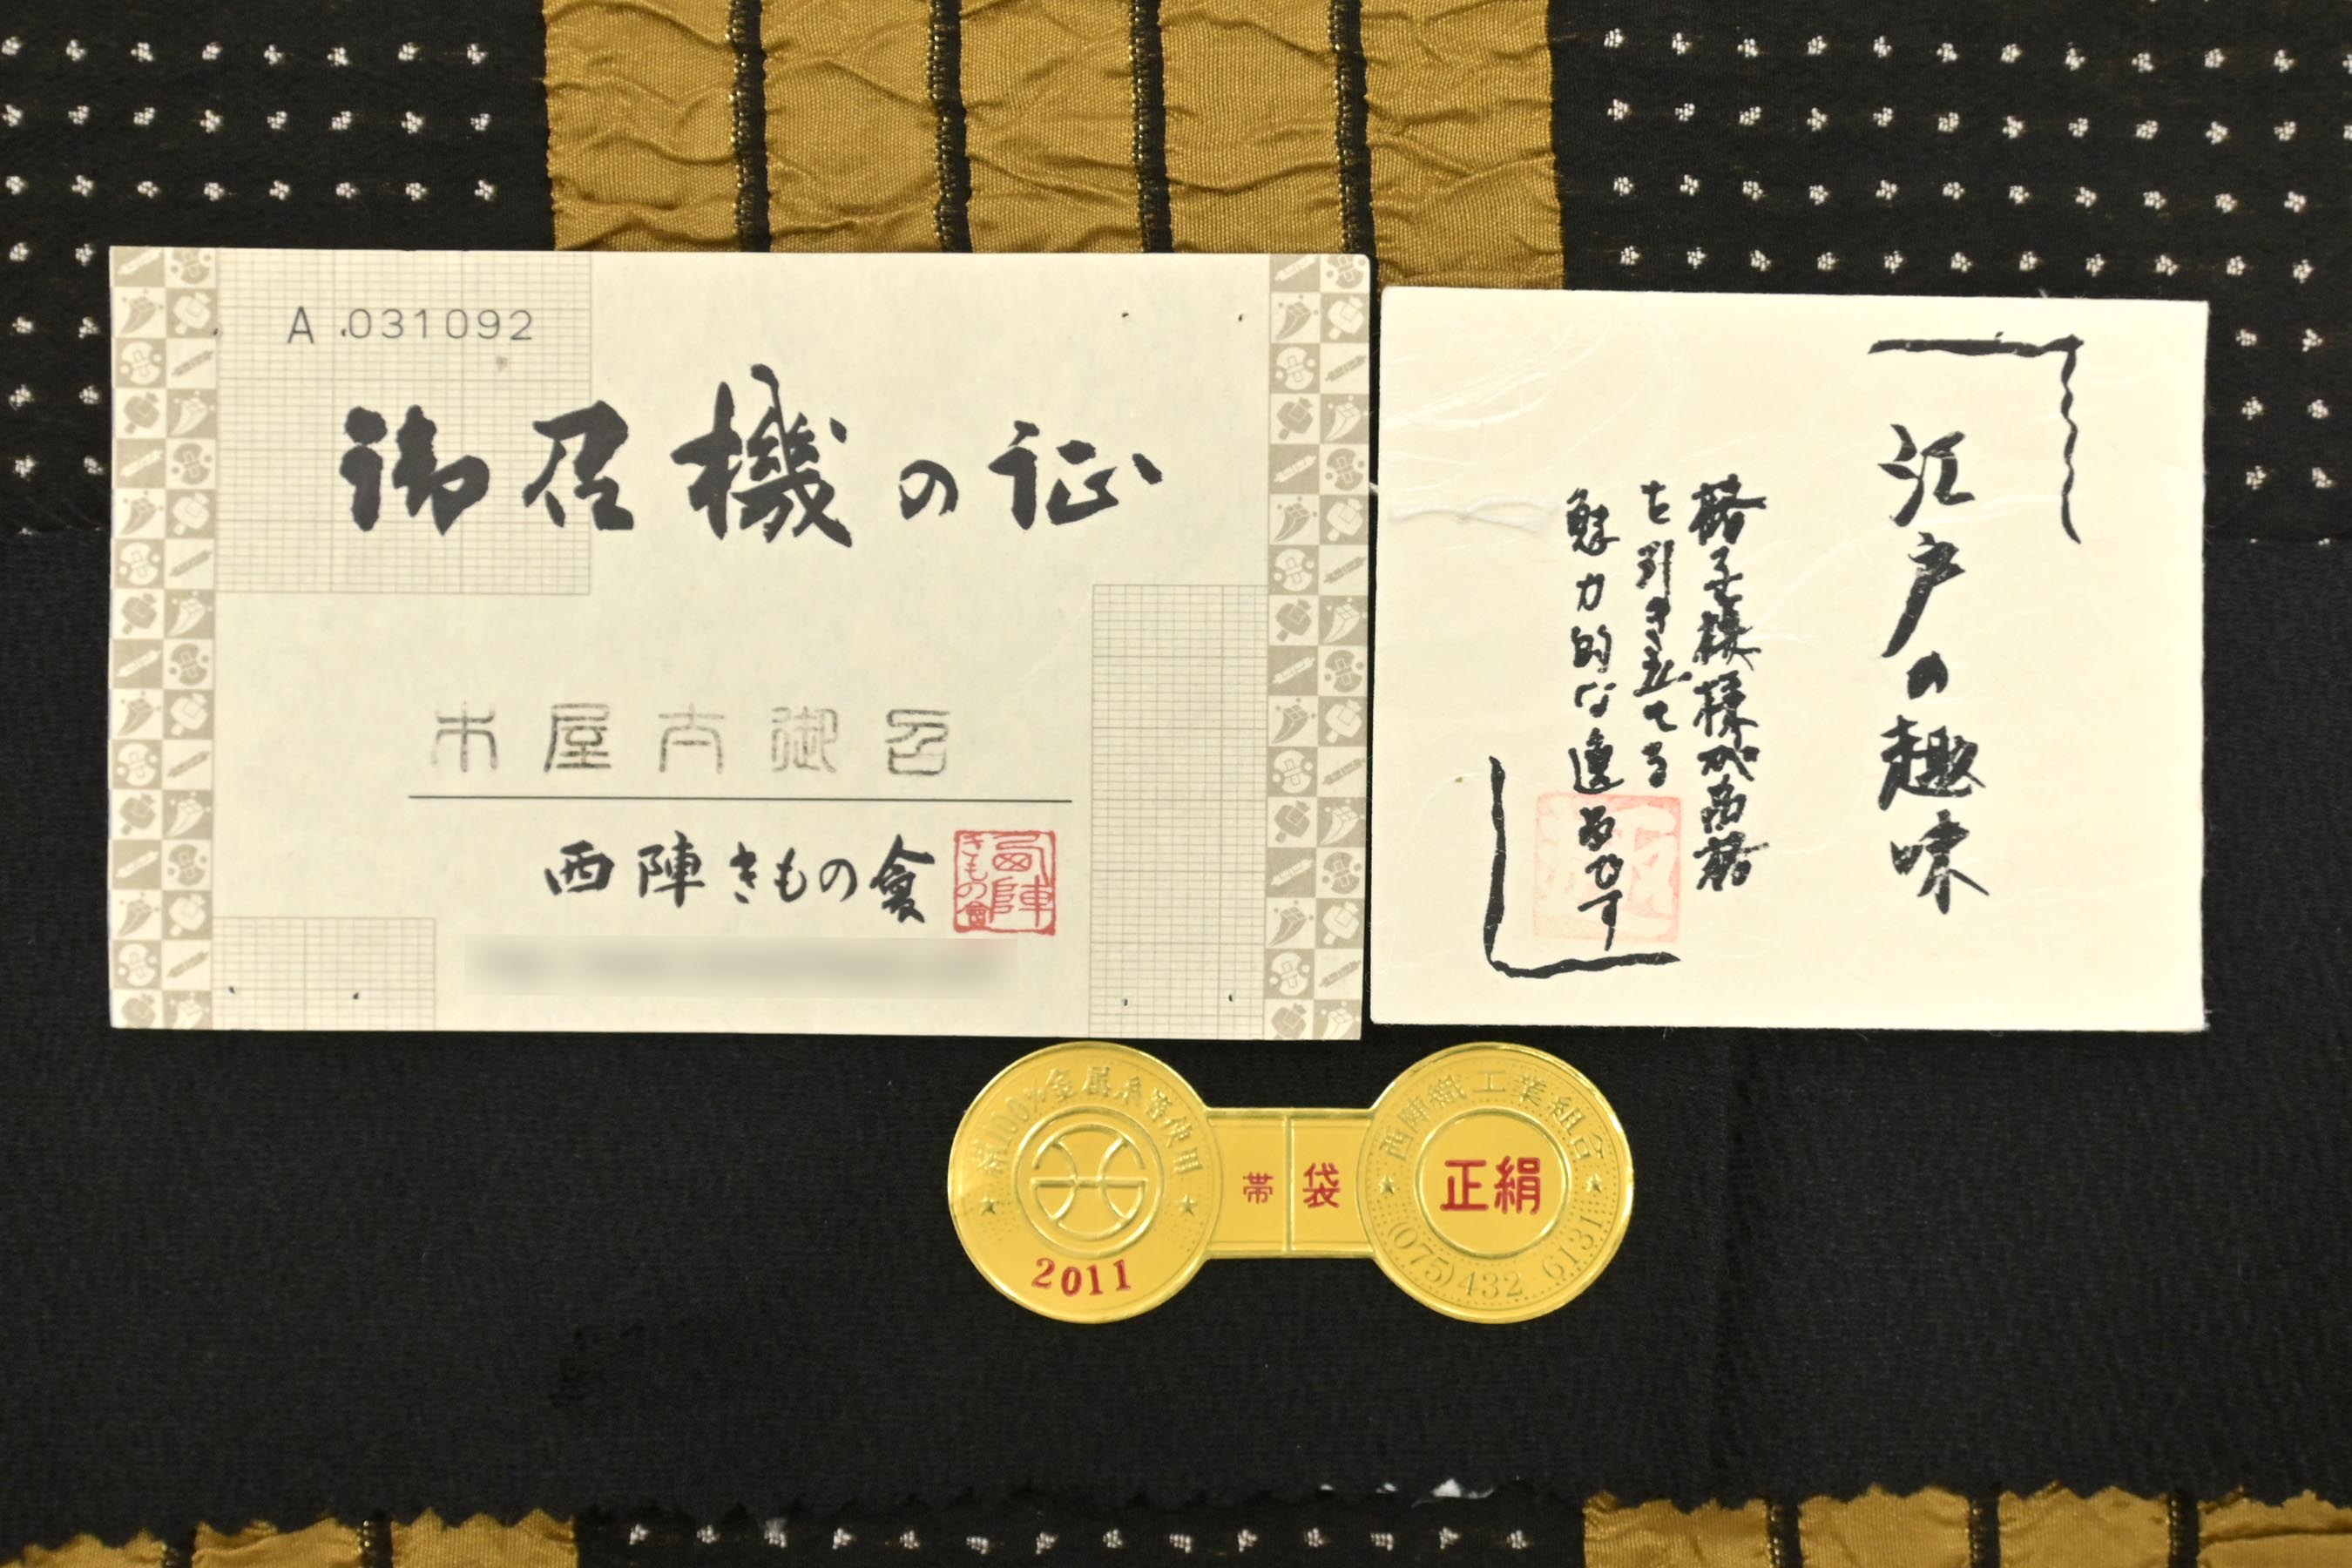 A 031092
御召機の証
本屋太御召
西陣きもの會
西陣
きもの會
江戸の趣味
格子模様が高格
を引き立てる
魅力的な逸品です
絹100%金属糸等使用
2011
帯
袋
西陣織工業組合
正絹
(075)432 6131